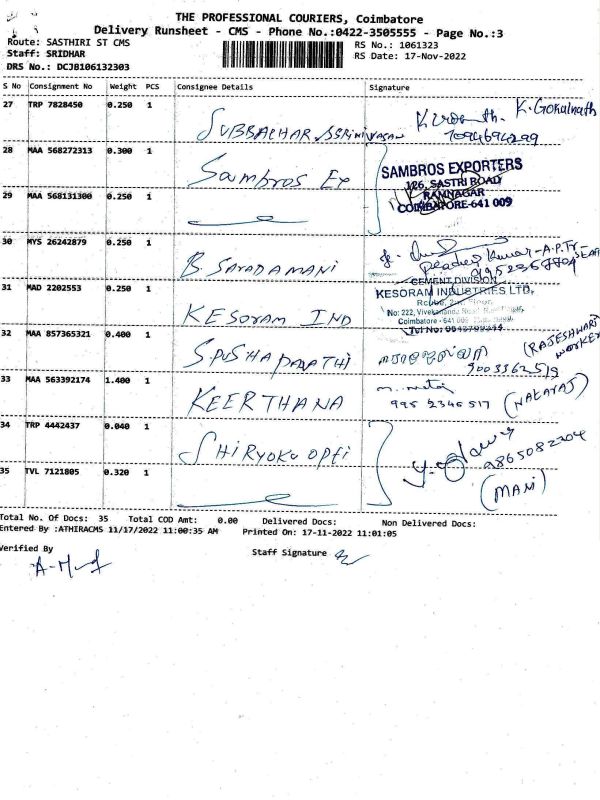 THE PROFESSIONAL COURIERS, Coimbatore
Delivery Runsheet - CMS - Phone No.:0422-3505555 - Page No.:3
Route: SASTHIRI ST CMS
Staff: SRIDHAR
DRS No.: DCJB106132303
RS No.: 1061323
RS Date: 17-Nov-2022
S No Consignment No Weight PCS Consignee Details Signature
27 TRP 7828450 0.250 1 K. Gokulnath
28 MAA 568272313 0.300 1 Sambros Ex
SAMBROS EXPORTERS
126, SASTRI ROAD
RAMNAGAR
COIMBATORE-641 009
29 MAA 568131300 0.250 1
30 MYS 26242879 0.250 1 B. SARADAMANI
CEMENT DIVISION
31 MAD 2202553 0.250 1 KESORAM IND
KESORAM INDUSTRIES LTD,
No: 222, Vivekananda Road, Ramnagar,
Coimbatore - 641 009
32 MAA 857365321 0.400 1 (RAJESHWARI
WORKER)
9003362519
33 MAA 563392174 1.400 1 KEERTHANA
995 2346517 (NAKARAJ)
34 TRP 4442437 0.040 1 SHIRYOKU OPTI
9865082204
35 TVL 7121805 0.320 1 (MANI)
Total No. Of Docs: 35 Total COD Amt: 0.00 Delivered Docs: Non Delivered Docs:
Entered By :ATHIRACMS 11/17/2022 11:00:35 AM Printed On: 17-11-2022 11:01:05
Verified By
Staff Signature